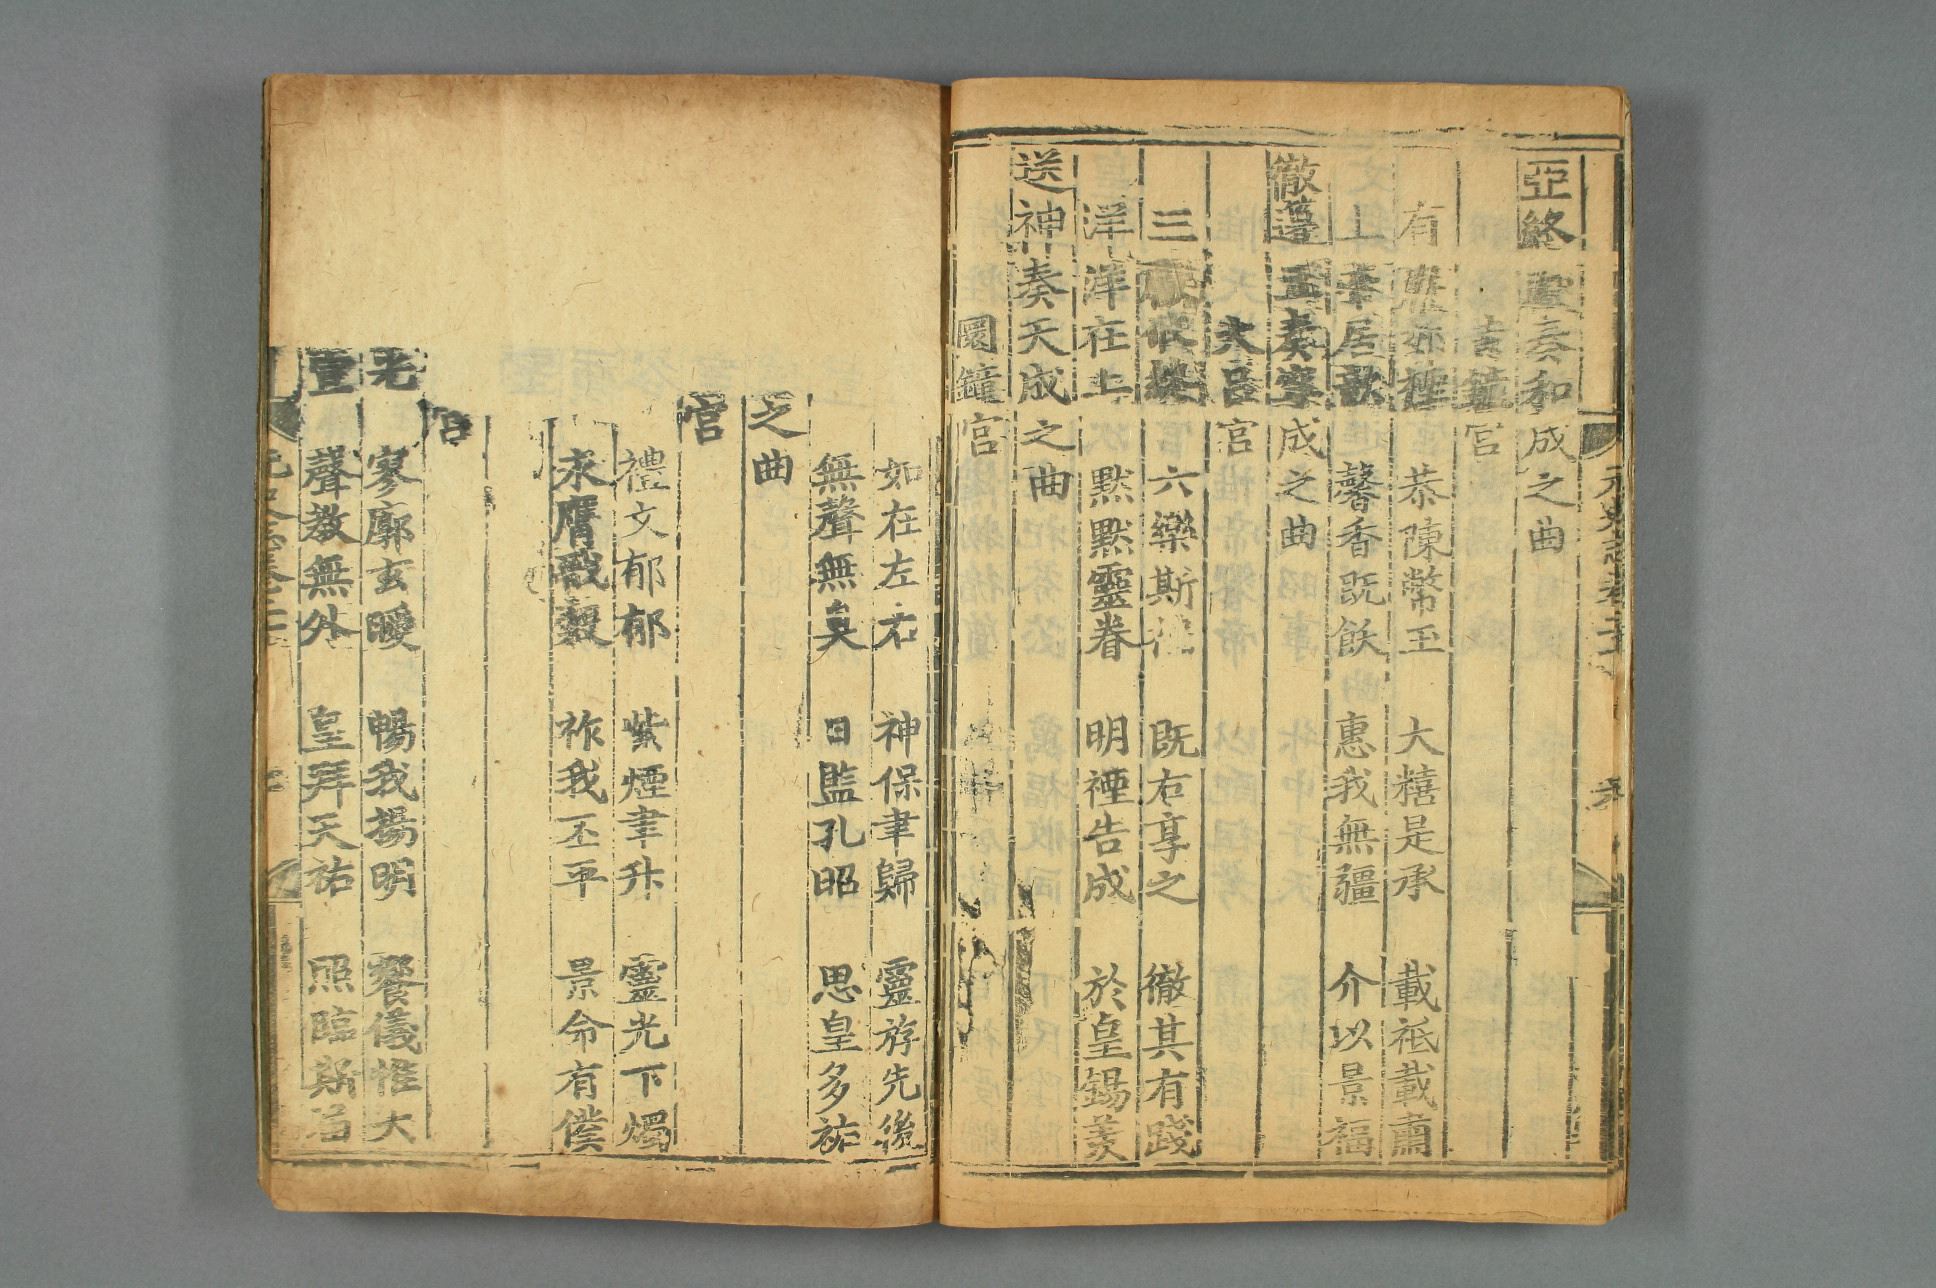 元史志卷二十
亞終獻奏和成之曲
黃鐘宮
有嚴郊禋 恭陳幣玉 大糦是承 載祗載肅
上帝居歆 馨香既飫 惠我無疆 介以景福
徹籩豆奏寧成之曲
大呂宮
三獻攸終 六樂斯 既右享之 徹其有踐
洋洋在上 默默靈眷 明禋告成 於皇錫羨
送神奏天成之曲
圜鐘宮
如在左右 神保聿歸 靈斿先後
無聲無臭 日監孔昭 思皇多祐
之曲
宮
禮文郁郁 紫煙聿升 靈光下燭
永膺戩穀 祚我丕平 景命有僕
宮
光 寥廓玄曖 暢我揚明 饗儀惟大
亶 聲教無外 皇拜天祐 照臨斯